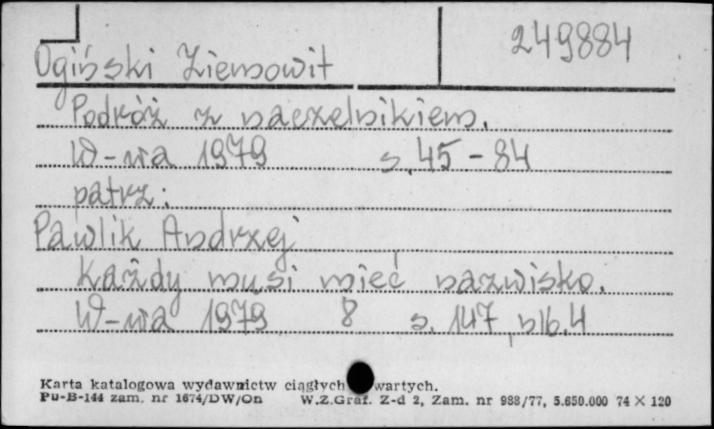 249884
Ogiński Ziemowit
Podróż z naczelnikiem.
W-wa 1979 s. 45-84
patrz:
Pawlik Andrzej
Każdy musi mieć nazwisko.
W-wa 1979 8 s. 147, nlb. 4
Karta katalogowa wydawnictw ciągłych wartych.
Pu-B-144 zam. nr 1674/DW/On W.Z.Graf. Z-d 2, Zam. nr 988/77, 5.650.000 74 × 120